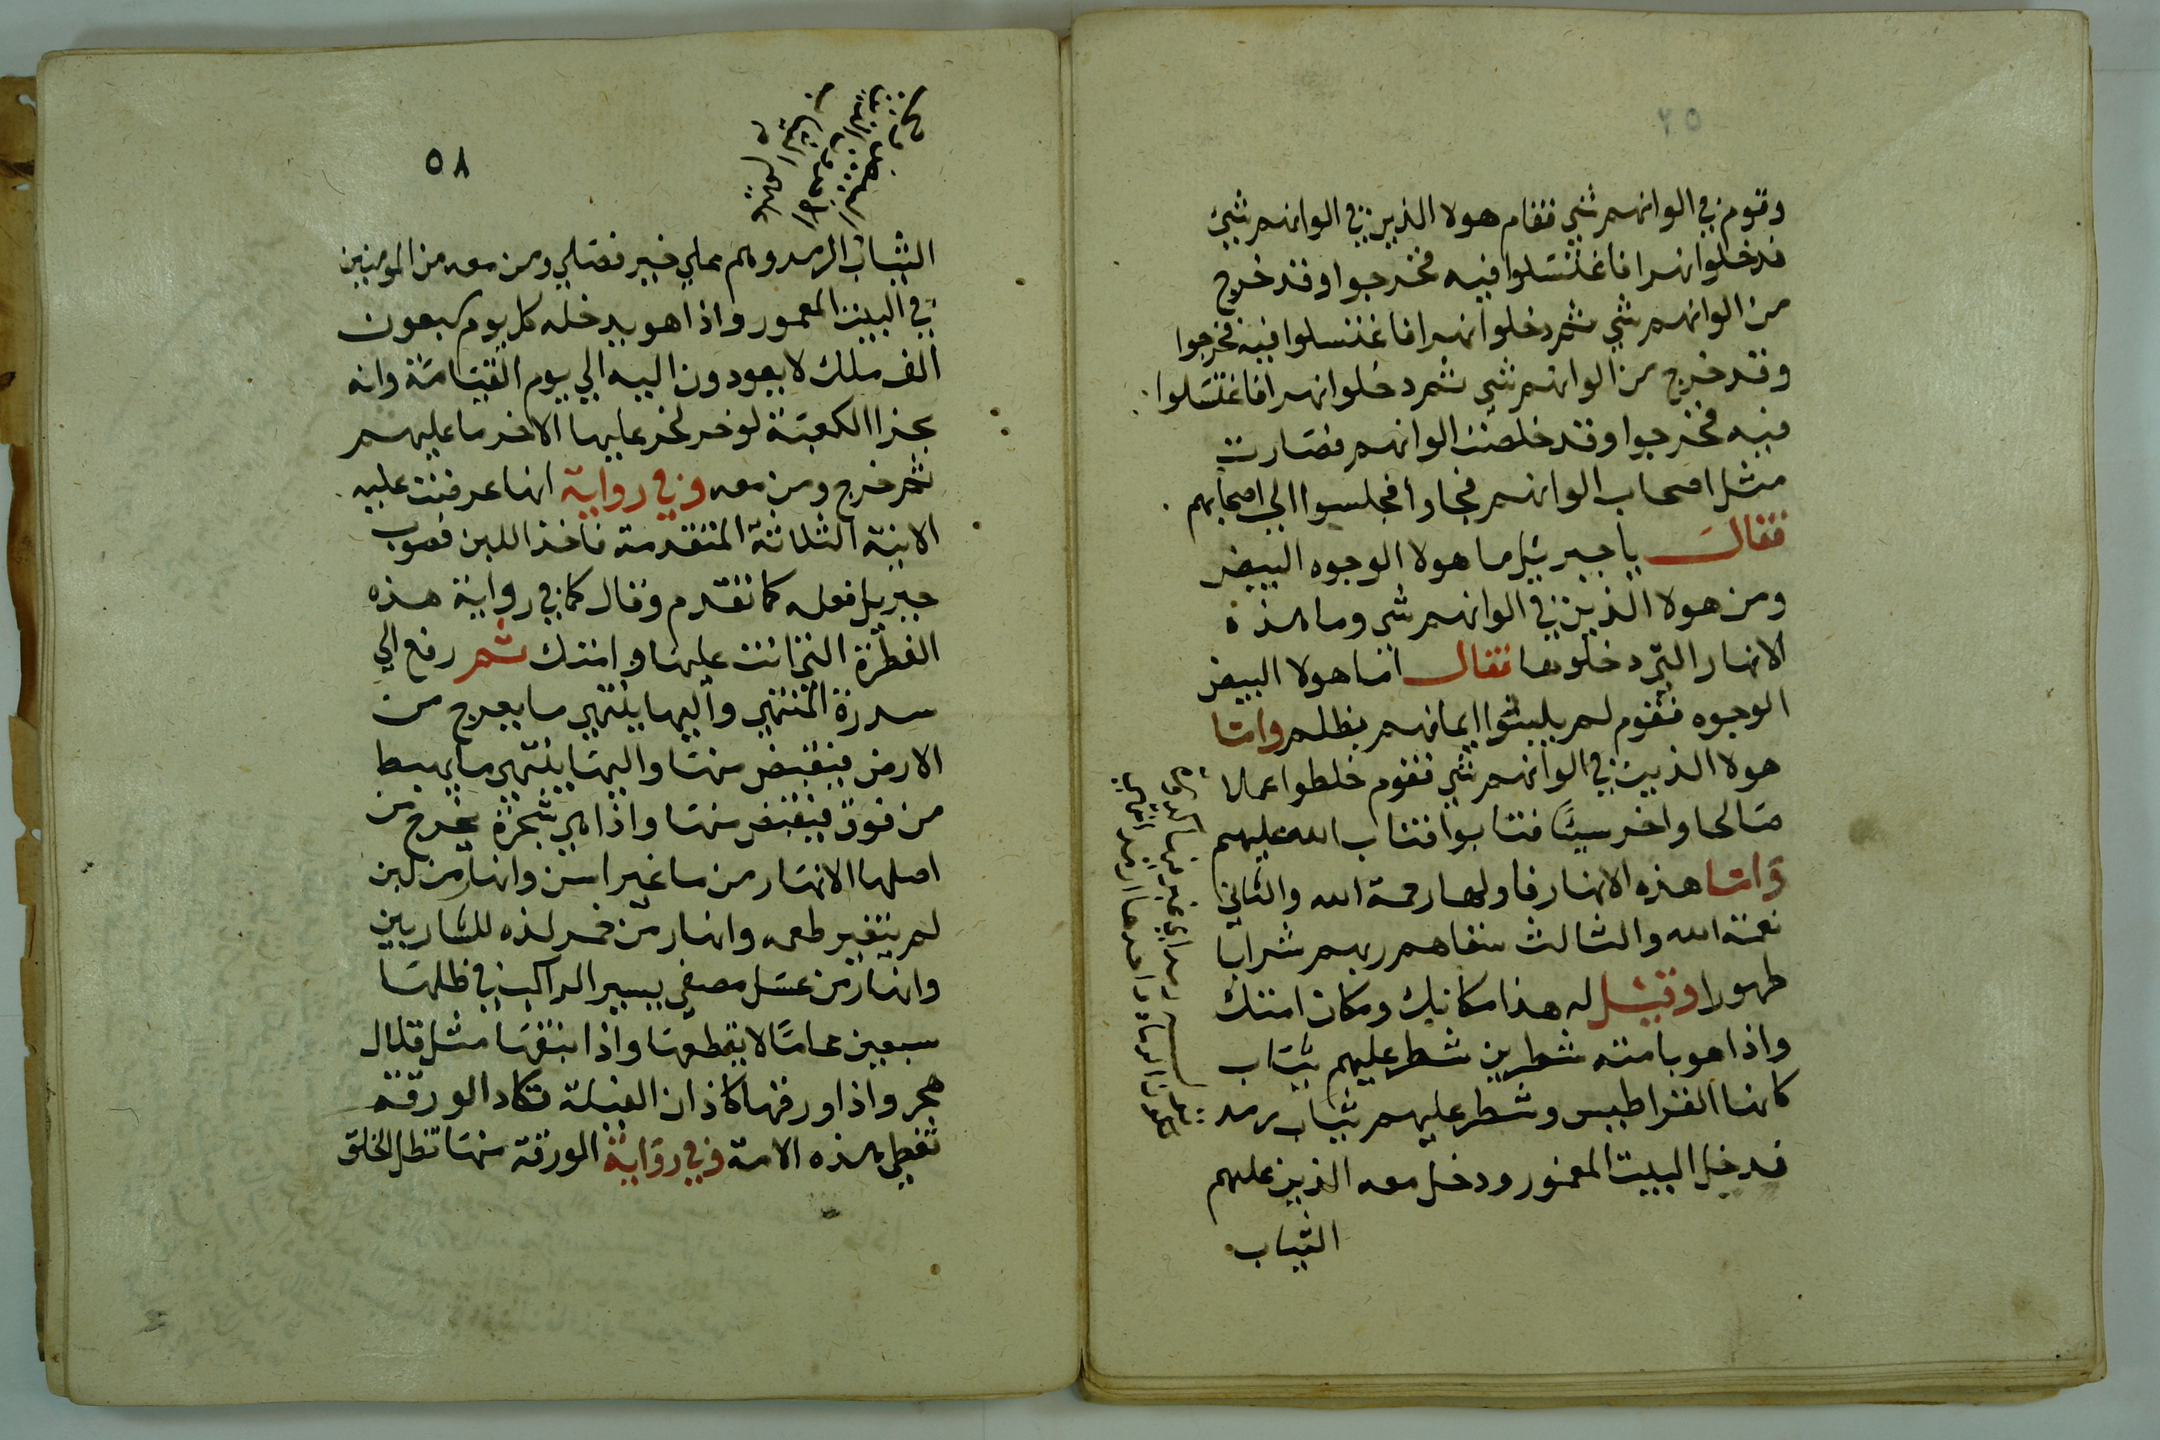 وقوم في الوانهم شي فقام هولا الذين في الوانهم شيئ
فدخلوا نهرا فاغتسلوا فيه فخرجوا وقد خرج
من الوانهم شي ثم دخلوا نهرا فاغتسلوا فيه فخرجوا
وقد خرج من الوانهم شي ثم دخلوا نهرا فاغتسلوا
فيه فخرجوا وقد خلصت الوانهم فصارت
مثل اصحاب الوانهم فجاوا فجلسوا الي اصحابهم
فقال يا جبريل ما هولا الوجوه البيض
ومن هولا الذين في الوانهم شي وما هذه
الانهار التي دخلوها فقال اما هولا البيض
الوجوه فقوم لم يلبسوا ايمانهم بظلم واما
هولا الذين في الوانهم شي فقوم خلطوا عملا
صالحا واخر سيئا فتابوا فتاب الله عليهم
واما هذه الانهار فاولها رحمة الله والثاني
نعمة الله والثالث سقاهم ربهم شرابا
طهورا وقيل له هذا مكانك ومكان امتك
واذا هو بامته شطرين شطر عليهم ثياب
كانها القراطيس وشطر عليهم ثياب رمد
فدخل البيت المعمور ودخل معه الذين عليهم
الثياب
٥٨
الثياب الرمد وهم علي خير فصلي ومن معه من المومنين
في البيت المعمور واذا هو يدخله كل يوم سبعون
الف ملك لا يعودون اليه الي يوم القيامة وانه
بحذا الكعبة لو خر لخر عليها الاخر ما عليهم
ثم خرج ومن معه وفي رواية انها عرضت عليه
الانية الثلاثة المتقدمة فاخذ اللبن فصوب
جبريل فعله كما تقدم وقال كما في رواية هذه
الفطرة التي انت عليها وامتك ثم رفع الي
سدرة المنتهي واليها ينتهي ما يعرج من
الارض فيقبض منها واليها ينتهي ما يهبط
من فوق فيقبض منها واذا هي شجرة يخرج من
اصلها الانهار من ما غير اسن وانهار من لبن
لم يتغير طعمه وانهار من خمر لذه للشاربين
وانهار من عسل مصفي يسير الراكب في ظلها
سبعين عاما لا يقطعها واذا نبقها مثل قلال
هجر واذا ورقها كاذان الفيلة تكاد الورقة
تغطي هذه الامة وفي رواية الورقة منها تظل الخلق